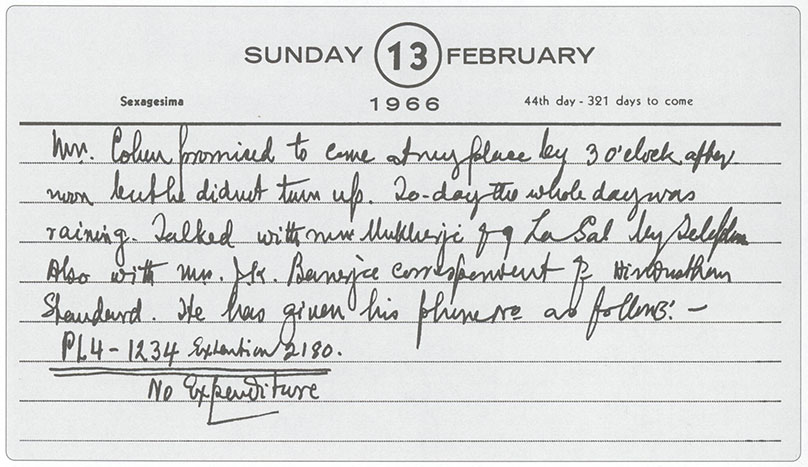 SUNDAY 13 FEBRUARY
Sexagesima 1966 44th day - 321 days to come
Mr. Cohen promised to come at my place by 3 o'clock after
noon but he didnot turn up. To-day the whole day was
raining. Talked with mr Mukherji of La Sal by Telephon
Also with Mr. J.K. Banerjee correspondent of Hindusthan
Standard. He has given his phone No as follows: -
PL4-1234 Extention 2180.
No Expenditure